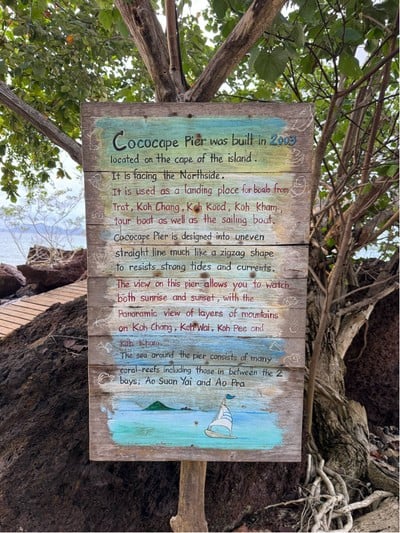 Cococape Pier was built in 2003
located on the cape of the island.
It is facing the Northside.
It is used as a landing place for boats from
Trat, Koh Chang, Koh Kood, Koh Kham,
tour boat as well as the sailing boat.
Cococape Pier is designed into uneven
straight line much like a zigzag shape
to resists strong tides and currents.
The view on this pier allows you to watch
both sunrise and sunset, with the
Panoramic view of layers of mountains
on Koh Chang, Koh Wai, Koh Pee and
Koh Kham.
The sea around the pier consists of many
coral-reefs including those in between the 2
bays; Ao Suan Yai and Ao Pra